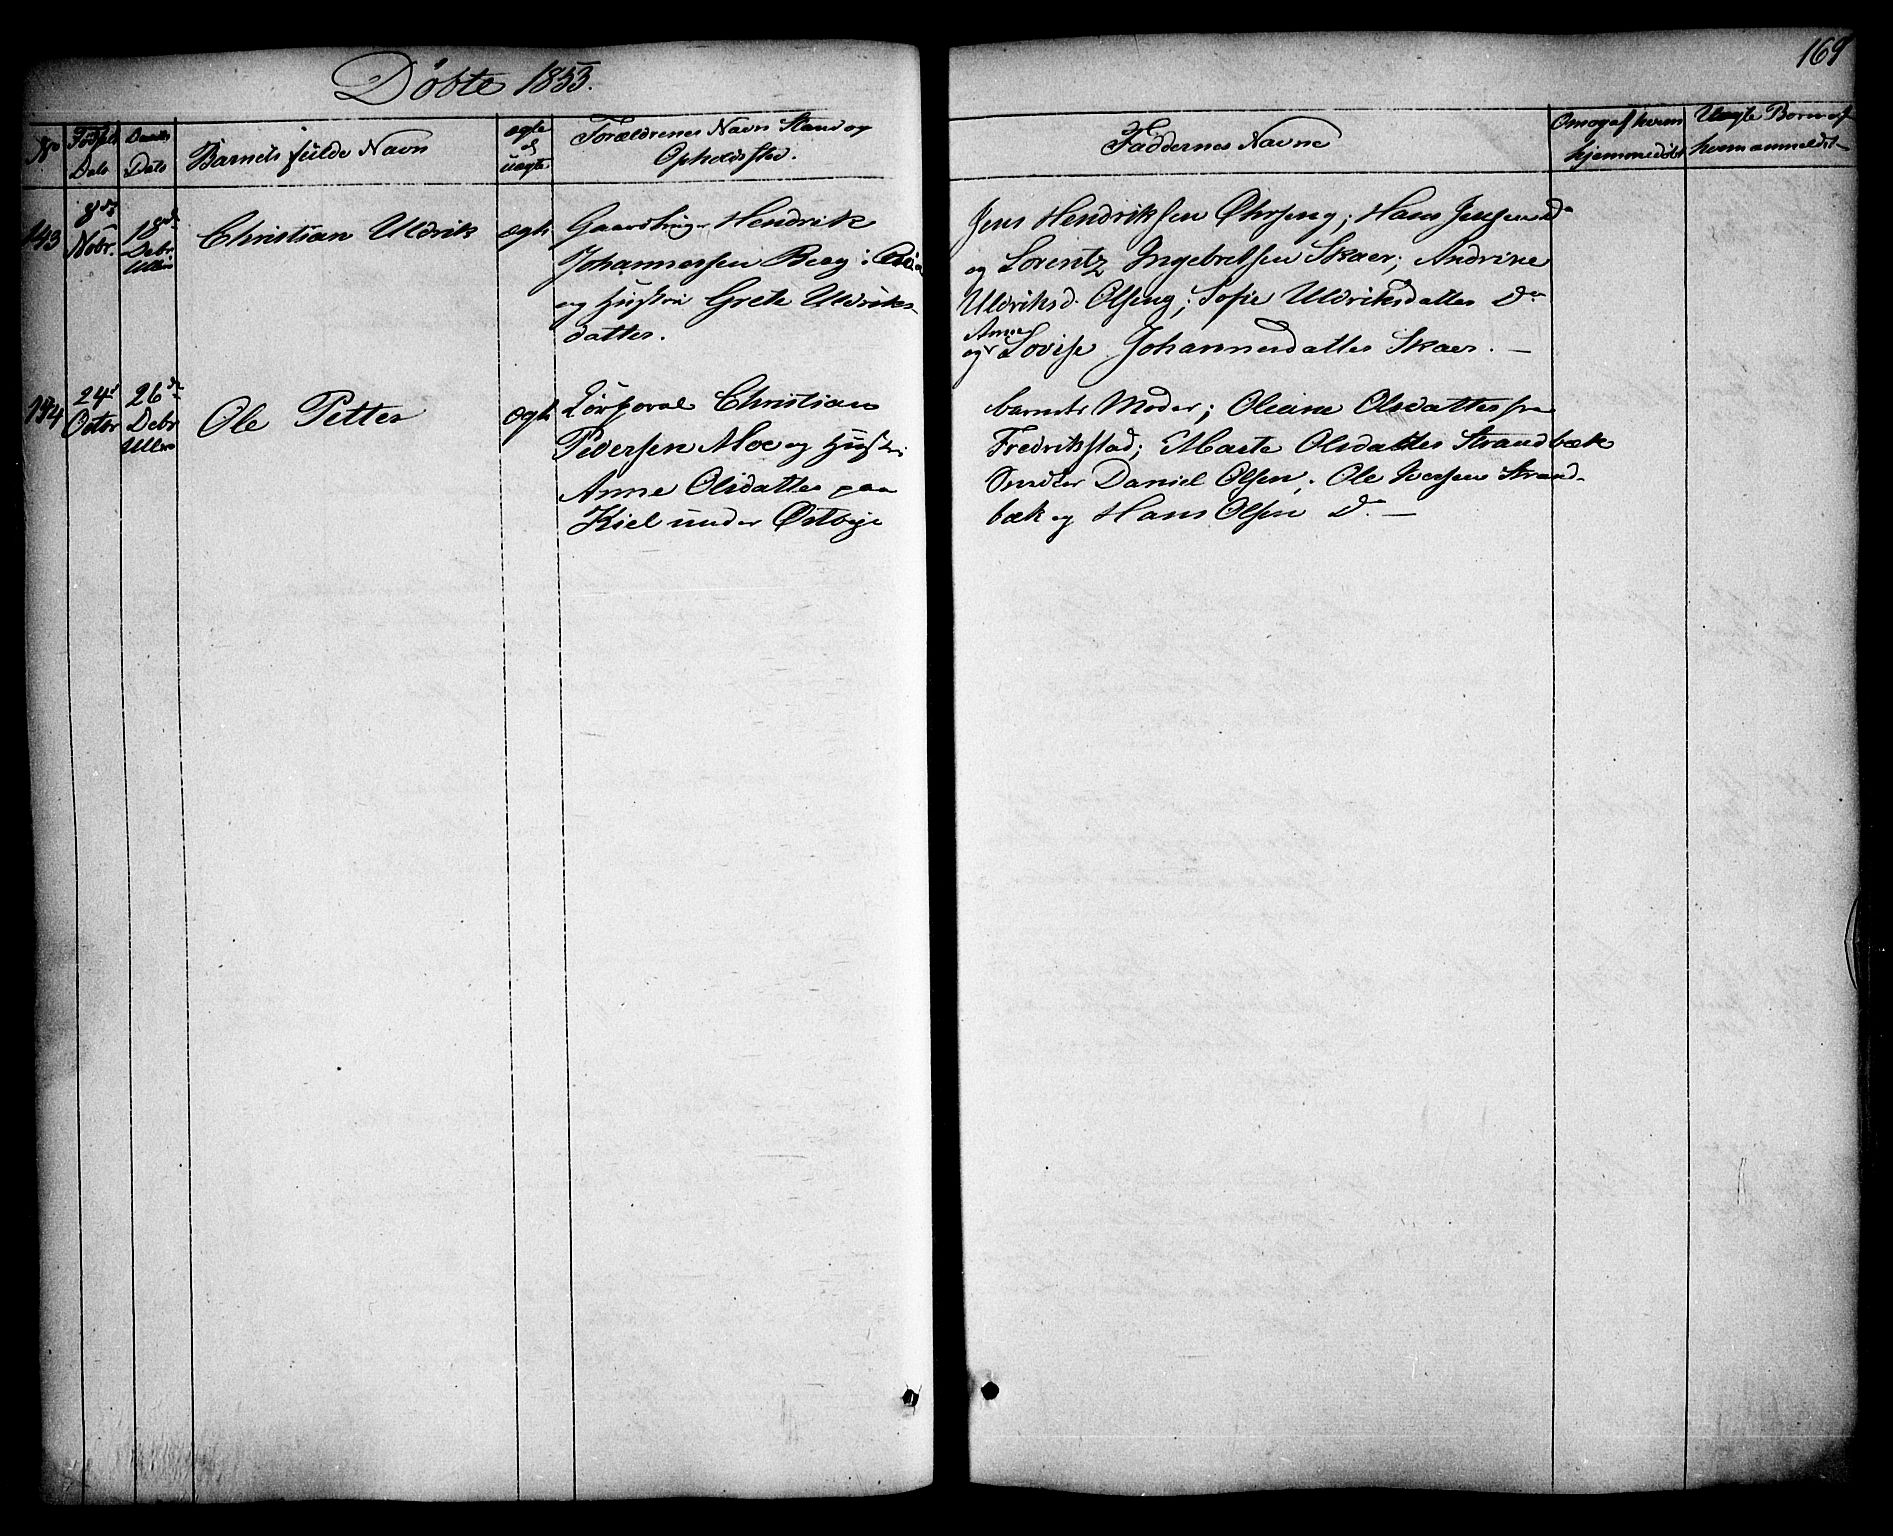 Døbte 1853.
169
No
Fødsels Dato
Daabs Dato
Barnets fulde Navn
ægte el uægte
Forældrenes Navn Stand og
Opholdssted.
Faddernes Navne
Om og af hvem
hjemmedøbt
Uægte Børn af
hvem anmeldt
143
8de
Novbr.
18de
Debr
Christian Uldrik
ægte
Gaardbruger Hendrik
Johannessen Berg i
og Hustru Grete Uldriks-
datter.
Jens Hendriksen ; Hans Jensen Do
og Lorentz Ingebretsen Skaer; Andrine
Uldriksd. Olseng; Sofie Uldriksdatter Do
og Anne Lovise Johannesdatter Skaer. —
144
24d
Octbr
26de
Debr
Ullerø
Ole Petter
ægte
Corporal Christian
Pedersen Moe og Hustru
Anne Olsdatter paa
Kiel under Østbye
barnets Moder; Oleane Olsdatter fra
Fredrikstad; Marte Olsdatter Strandbæk
Daniel Olsen; Ole Iversen Strand-
bæk og Hans Olsen Do. —